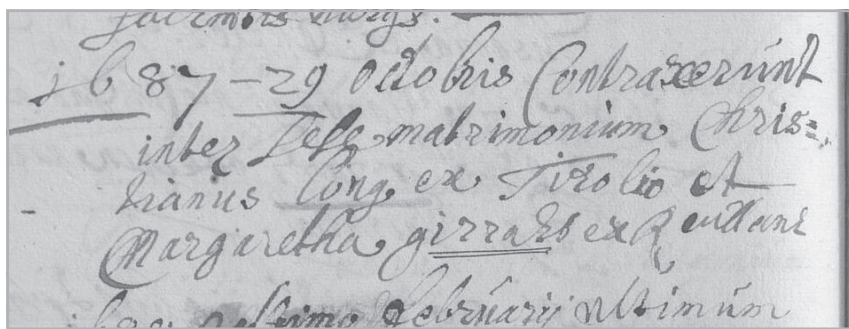 1687 – 29 octobris Contraxerunt
inter Sese matrimonium Chris=
tianus Long ex Tirolio et
Margaretha girrards ex
februarij ultimum